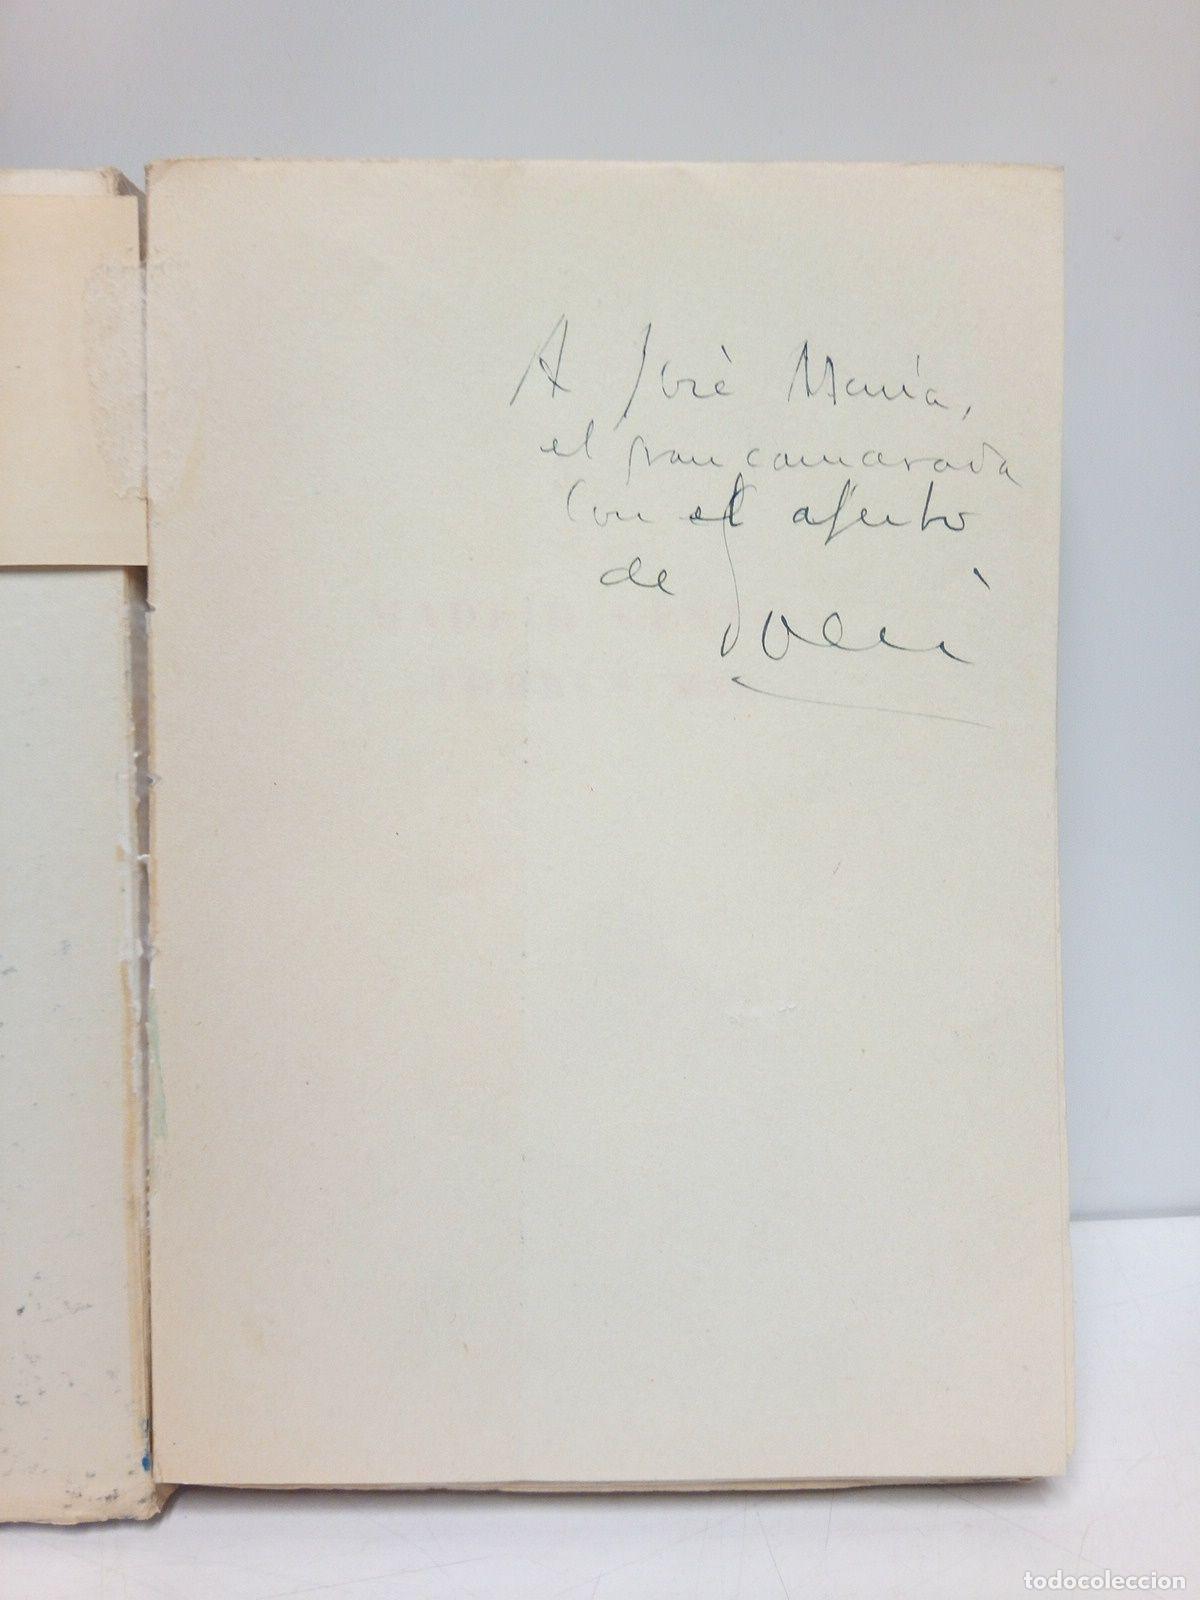 A José María,
el gran camarada
con el afecto
de
todocoleccion